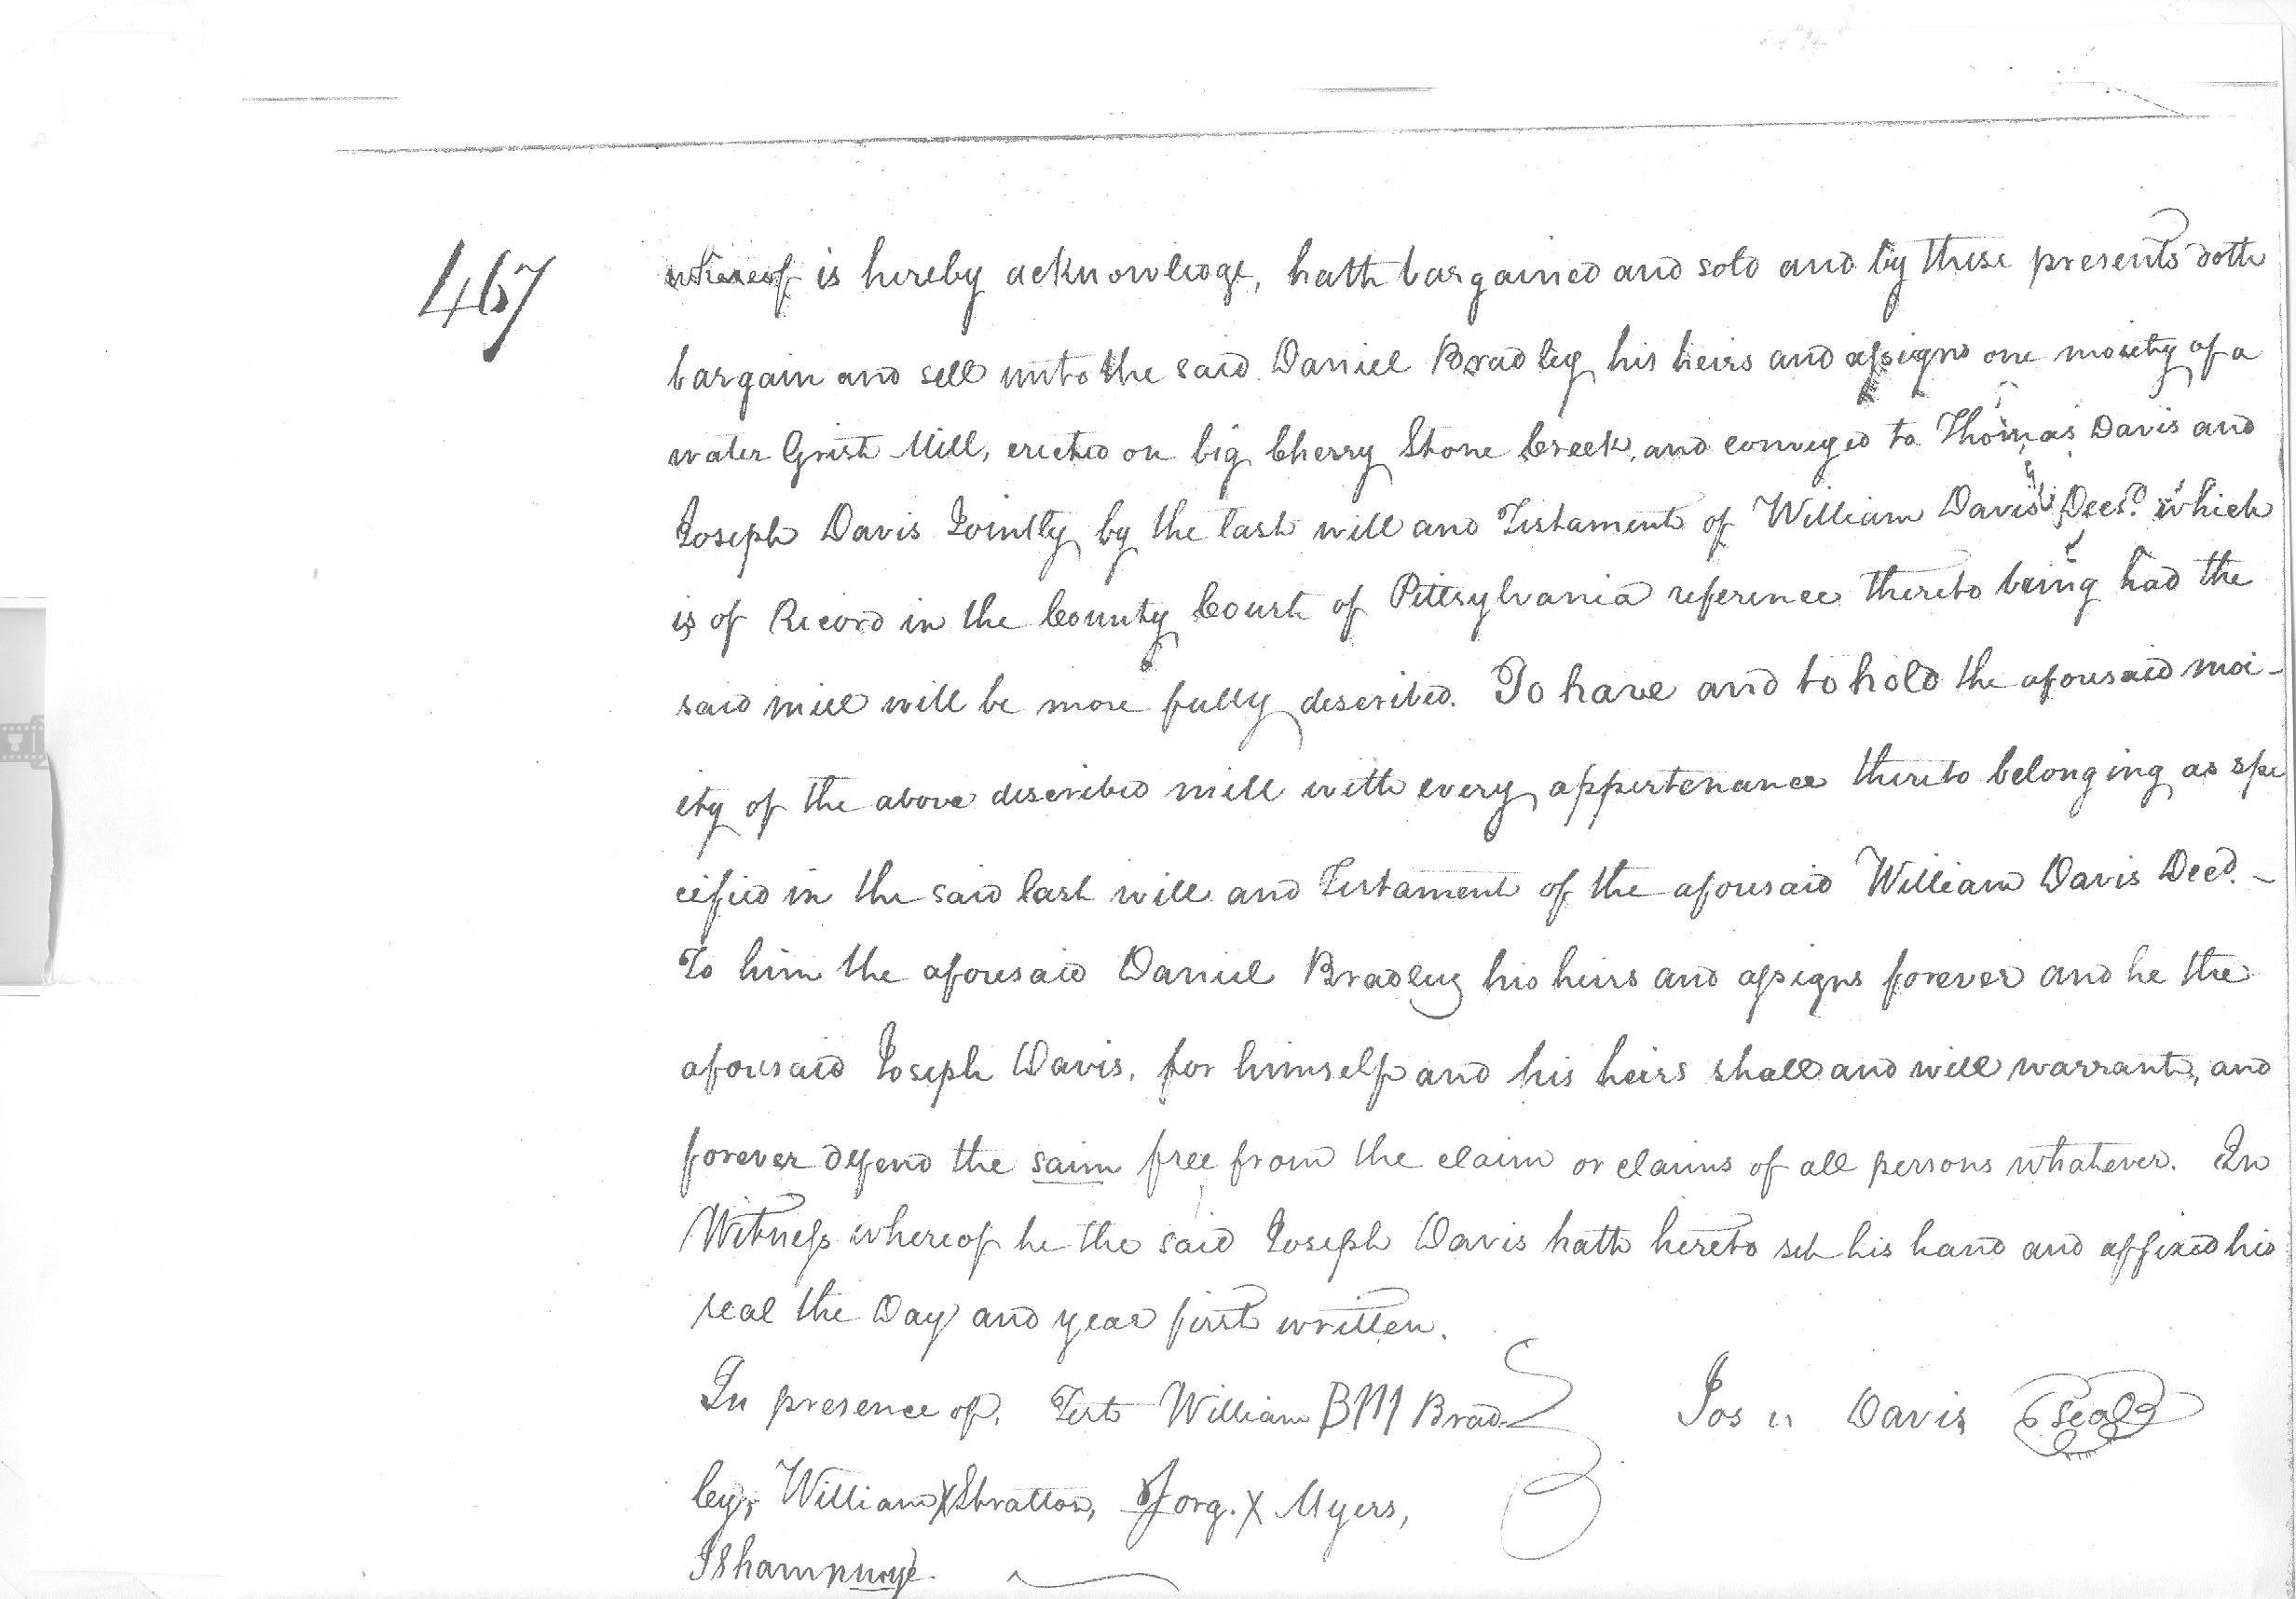 467
whereof is hereby acknowledge, hath bargained and sold and by these presents doth
bargain and sell unto the said Daniel Bradley his heirs and assigns one moiety of a
water Grist Mill, erected on big Cherry Stone Creek, and conveyed to Thomas Davis and
Joseph Davis Jointly by the last will and Testament of William Davis Decd. which
is of Record in the County Court of Pittsylvania reference thereto being had the
said mill will be more fully described. To have and to hold the aforesaid moi-
ety of the above described mill with every appertenance thereto belonging as spe
cified in the said last will and Testament of the aforesaid William Davis Decd. -
To him the aforesaid Daniel Bradley his heirs and assigns forever and he the
aforesaid Joseph Davis, for himself and his heirs shall and will warrant, and
forever defend the saim free from the claim or claims of all persons whatever. In
Witness whereof he the said Joseph Davis hath hereto set his hand and affixed his
seal the Day and year first written.
In presence of. Test William BM Brad- Jos " Davis Seal
ley, William X Stratton, Gorg. X Myers,
Isham